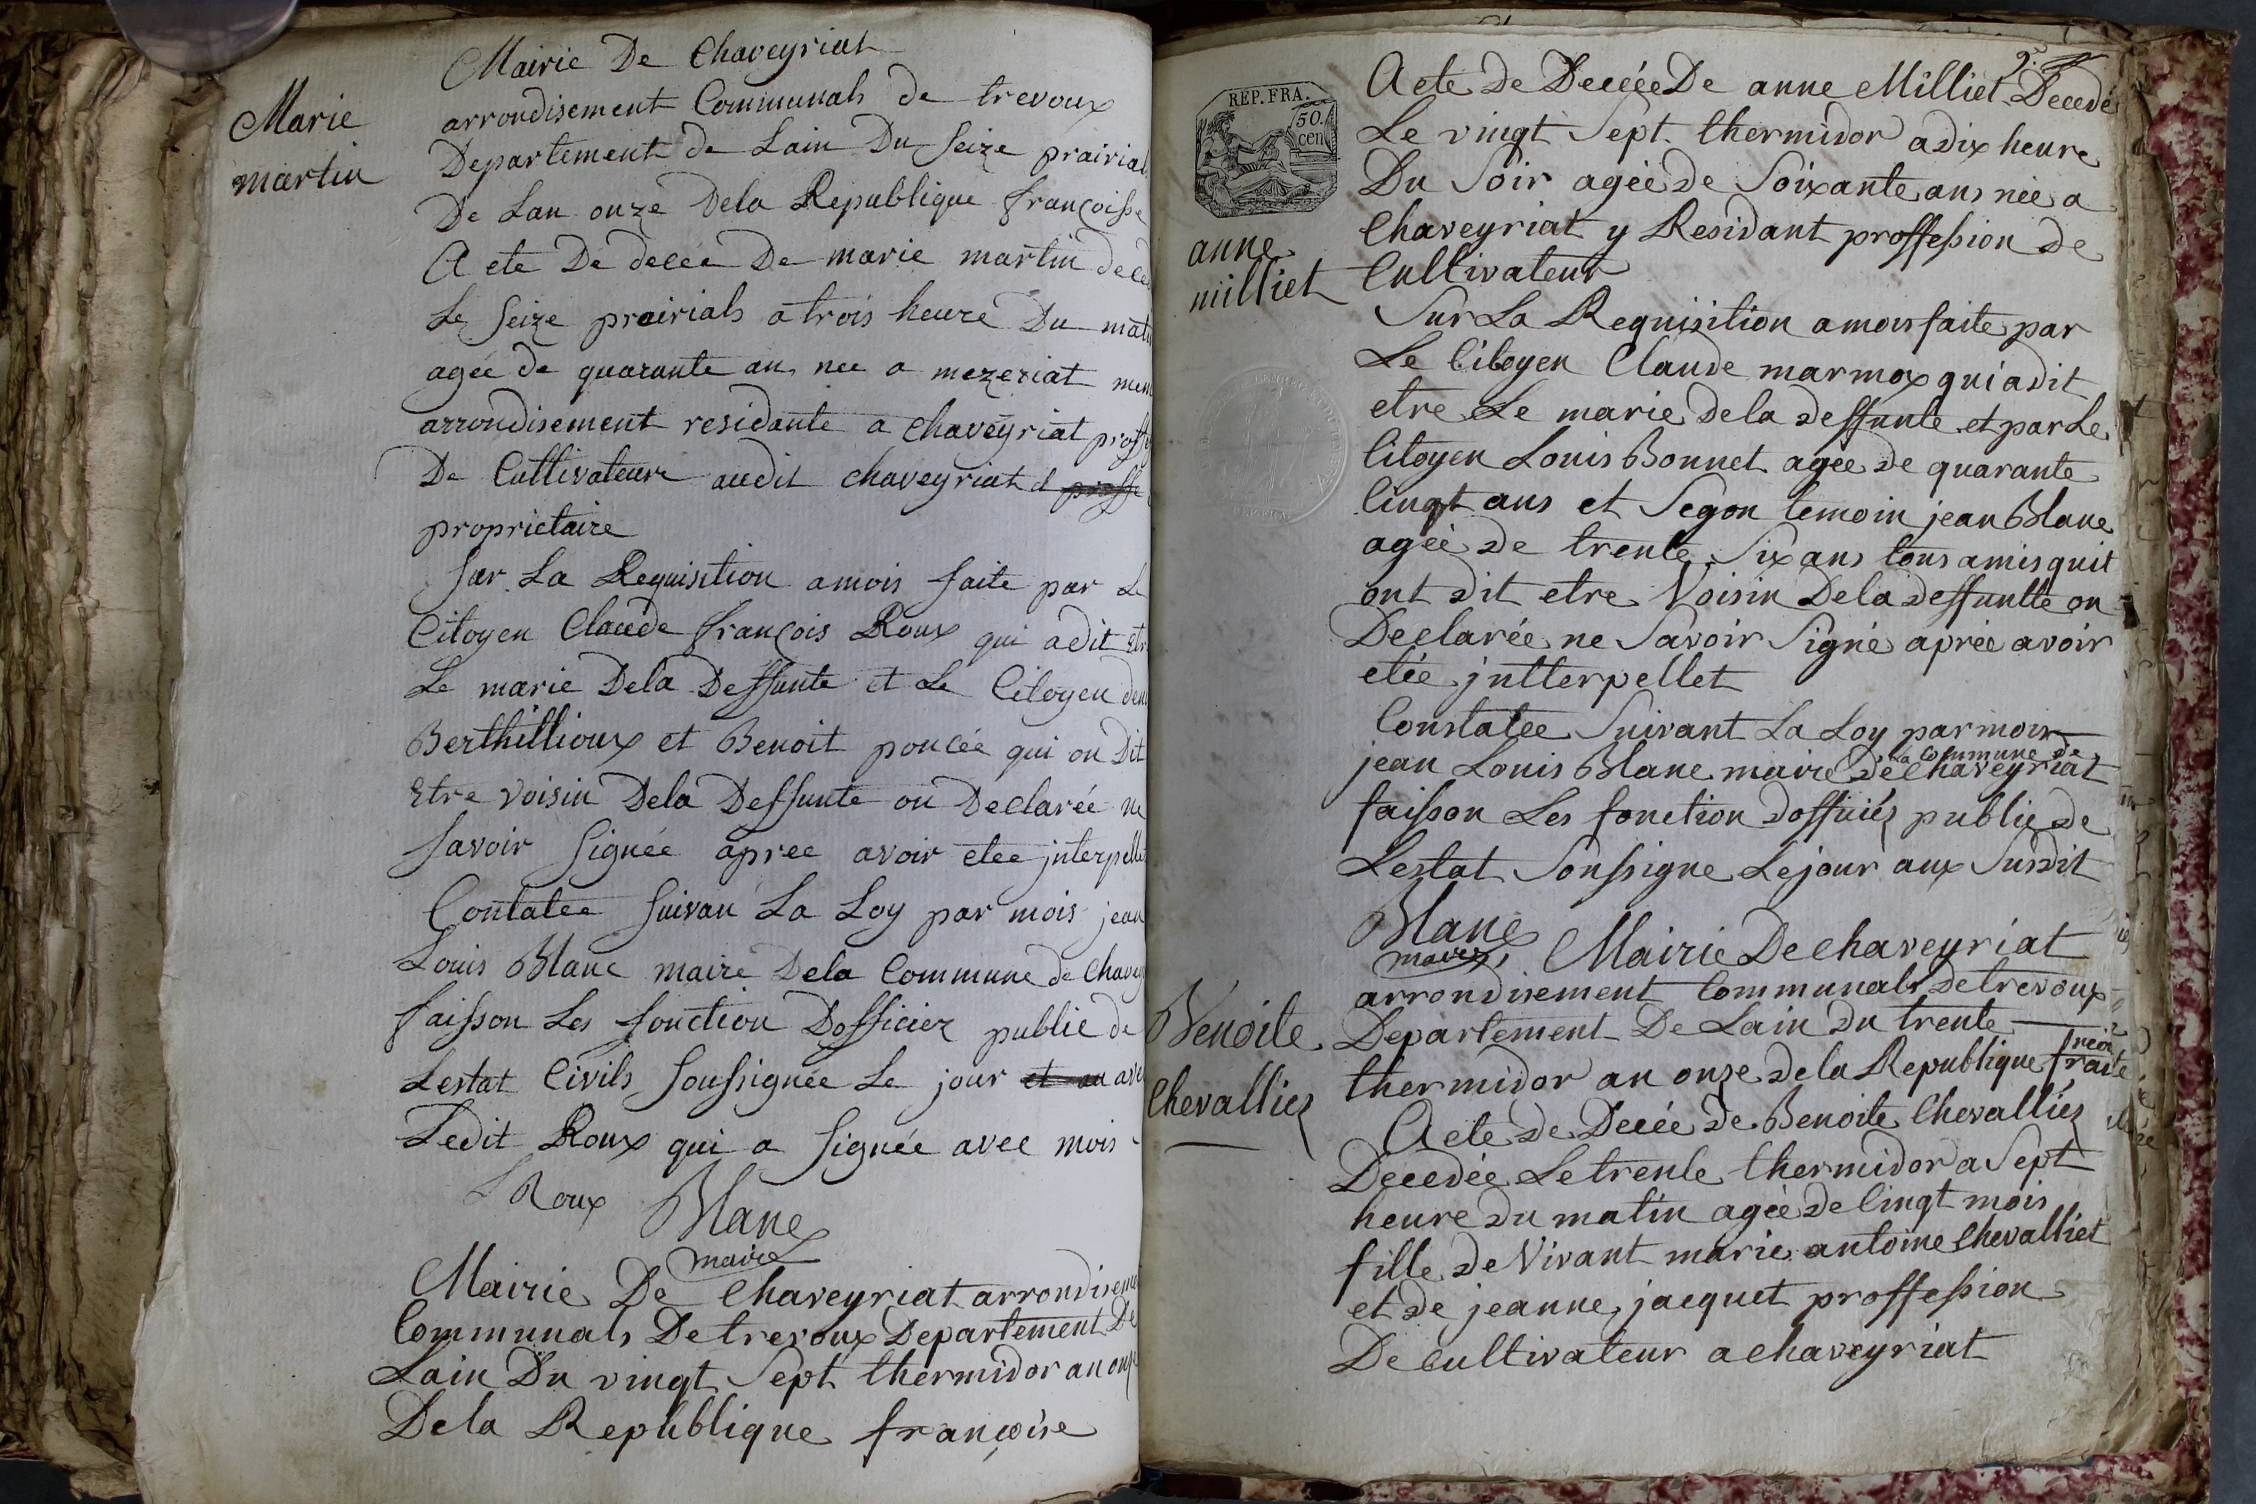 Mairie De Chaveyriat
Marie
martin
arrondisement Communals de trevoux
Departement de Lain Du Seize prairial
De Lan onze Dela Republique françoisse
Acte De decée De marie martin deced
Le Seize prairials a trois heure Du mati
agée de quarante an nee a mezeriat mem
arrondisement residante a Chaveyriat proffe
De Cultivateur audit chaveyriat et proffe
proprietaire
Sur La Requisition a mois faite par Le
Citoyen Claude françois Roux qui a dit etr
Le marie Dela Deffunte et Le Citoyen
Berthillioux et Benoit poncée qui on Dit
Etre voisin Dela Deffunte on Declarée ne
Savoir Signée apree avoir etee interpelle
Contatee Suivan La Loy par mois jean
Louis Blanc maire Dela Commune de Chavey
faisson Les fonction Dofficier public de
Lestat Civils Soussignée Le jour et an ave
Ledit Roux qui a Signée avec mois
Roux Blanc
maire
Mairie De Chaveyriat arrondiseme
Communals De trevoux Departement De
Lain Du vingt Sept thermidor an onz
Dela Republique françoise
REP. FRA.
50.
cen
anne
milliet
Acte de Decée De anne Milliet Decedé
Le vingt Sept thermidor a dix heure
Du Soir agée de Soixante ans née a
Chaveyriat y Residant proffession de
Cultivateur
Sur La Requisition a mois faite par
Le Citoyen Claude marmox qui a dit
etre Le marie Dela deffunte et par Le
Citoyen Louis Bonnet agee de quarante
Cinqt ans et Segon temoin jean Blanc
agée de trente Six ans tous amis quit
ont dit etre Voisin Dela deffuntte on
Declarée ne Savoir Signé aprée avoir
etée jntterpellet
Constatee Suivant La Loy par mois
la Commune de
jean Louis Blanc maire de Chaveyriat
faisson Les fonction dofficiér public de
Lestat Soussigne Le jour aux Susdit
Blanc
maire
Mairie De chaveyriat
arrondisement Communals De trevoux
Benoite
Chevalliér
Departement De Lain du trente
thermidor an onze dela Republique
Acte de Decée de Benoite Chevalliér
Decedée Le trente thermidor a Sept
heure du matin agée de Cinqt mois
fille de Vivant marie antoine Chevalliet
et de jeanne jacquet proffession
De cultivateur a chaveyriat